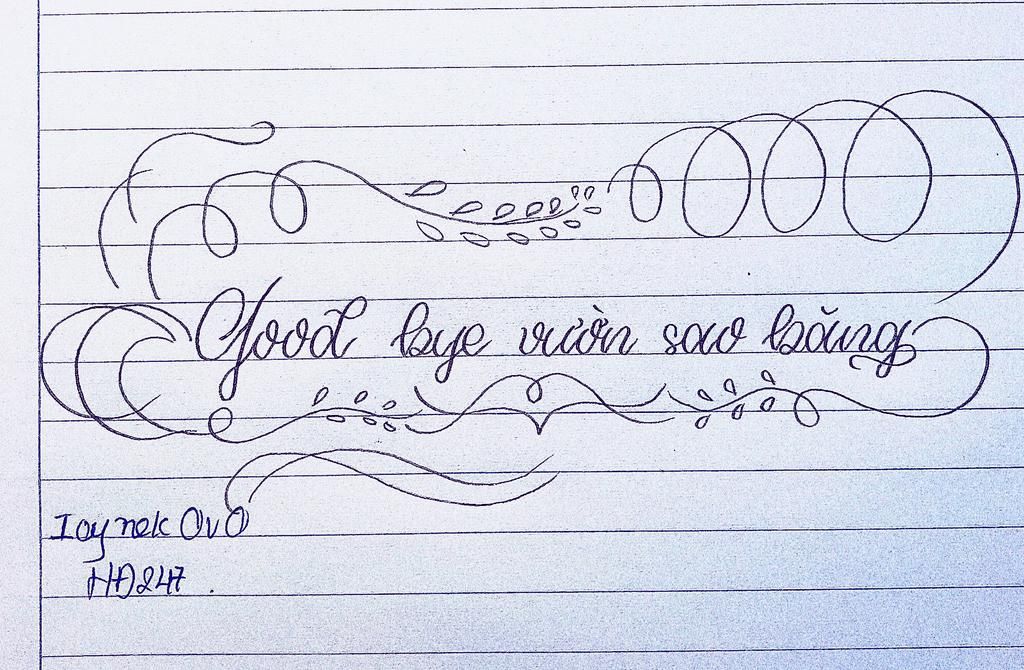 Good bye vườn sao băng
Ioynek OvO
HĐ247.